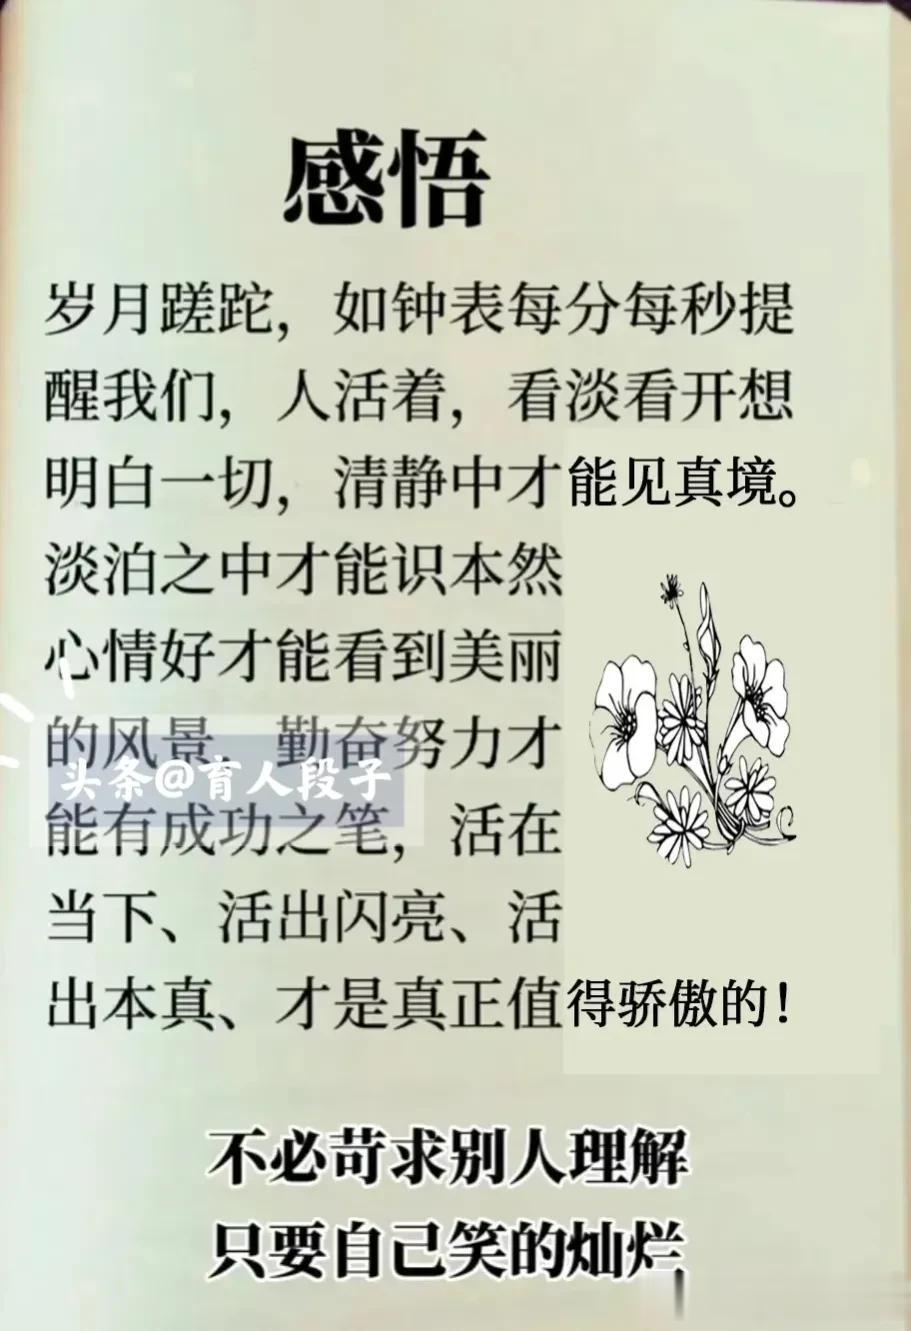 感悟
岁月蹉跎，如钟表每分每秒提
醒我们，人活着，看淡看开想
明白一切，清静中才能见真境。
淡泊之中才能识本然
心情好才能看到美丽
的风景，勤奋努力才
头条@育人段子
能有成功之笔，活在
当下、活出闪亮、活
出本真、才是真正值得骄傲的！
不必苛求别人理解
只要自己笑的灿烂